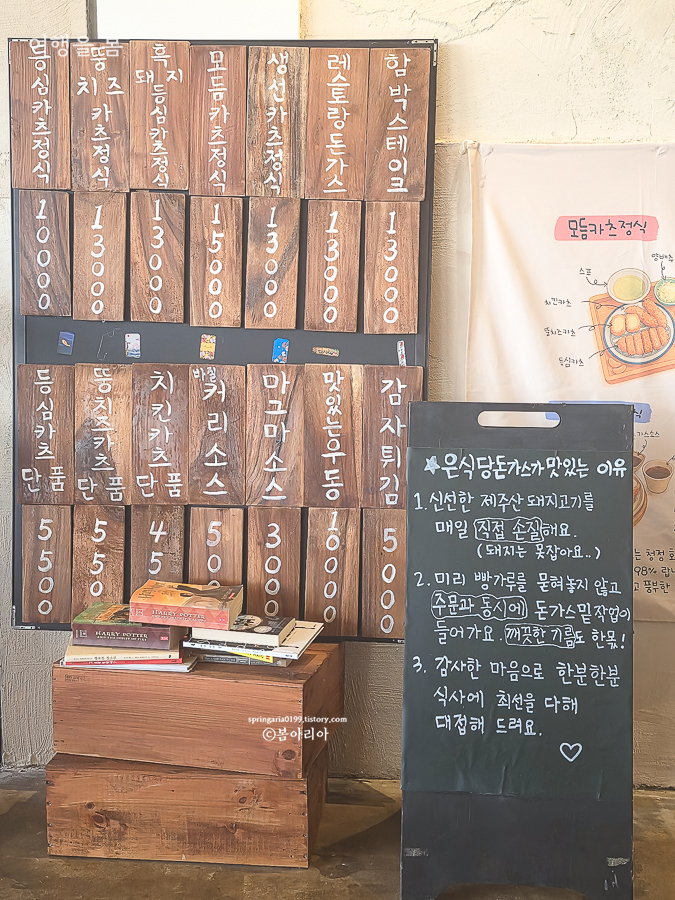 여행을, 봄
등심카츠정식
뚱치즈카츠정식
흑돼지등심카츠정식
모듬카츠정식
생선카츠정식
레스토랑돈가스
함박스테이크
10000
13000
13000
15000
13000
13000
13000
등심카츠단품
뚱치즈카츠단품
치킨카츠단품
바질커리소스
마그마소스
맛있는우동
감자튀김
5500
550
45
500
3000
10000
5000
모듬카츠정식
스프
양배추
치킨카츠
뚱치즈카츠
등심카츠
식
는 청정
98% 랍니
고 풍부한
은식당돈가스가 맛있는 이유
1. 신선한 제주산 돼지고기를
매일 직접 손질해요.
(돼지는 못잡아요..)
2. 미리 빵가루를 묻혀놓지 않고
주문과 동시에 돈가스밑작업이
들어가요. 깨끗한 기름도 한몫!
3. 감사한 마음으로 한분한분
식사에 최선을 다해
대접해 드려요.
HARRY POTTER
HARRY POTTER
springaria0199.tistory.com
©봄아리아